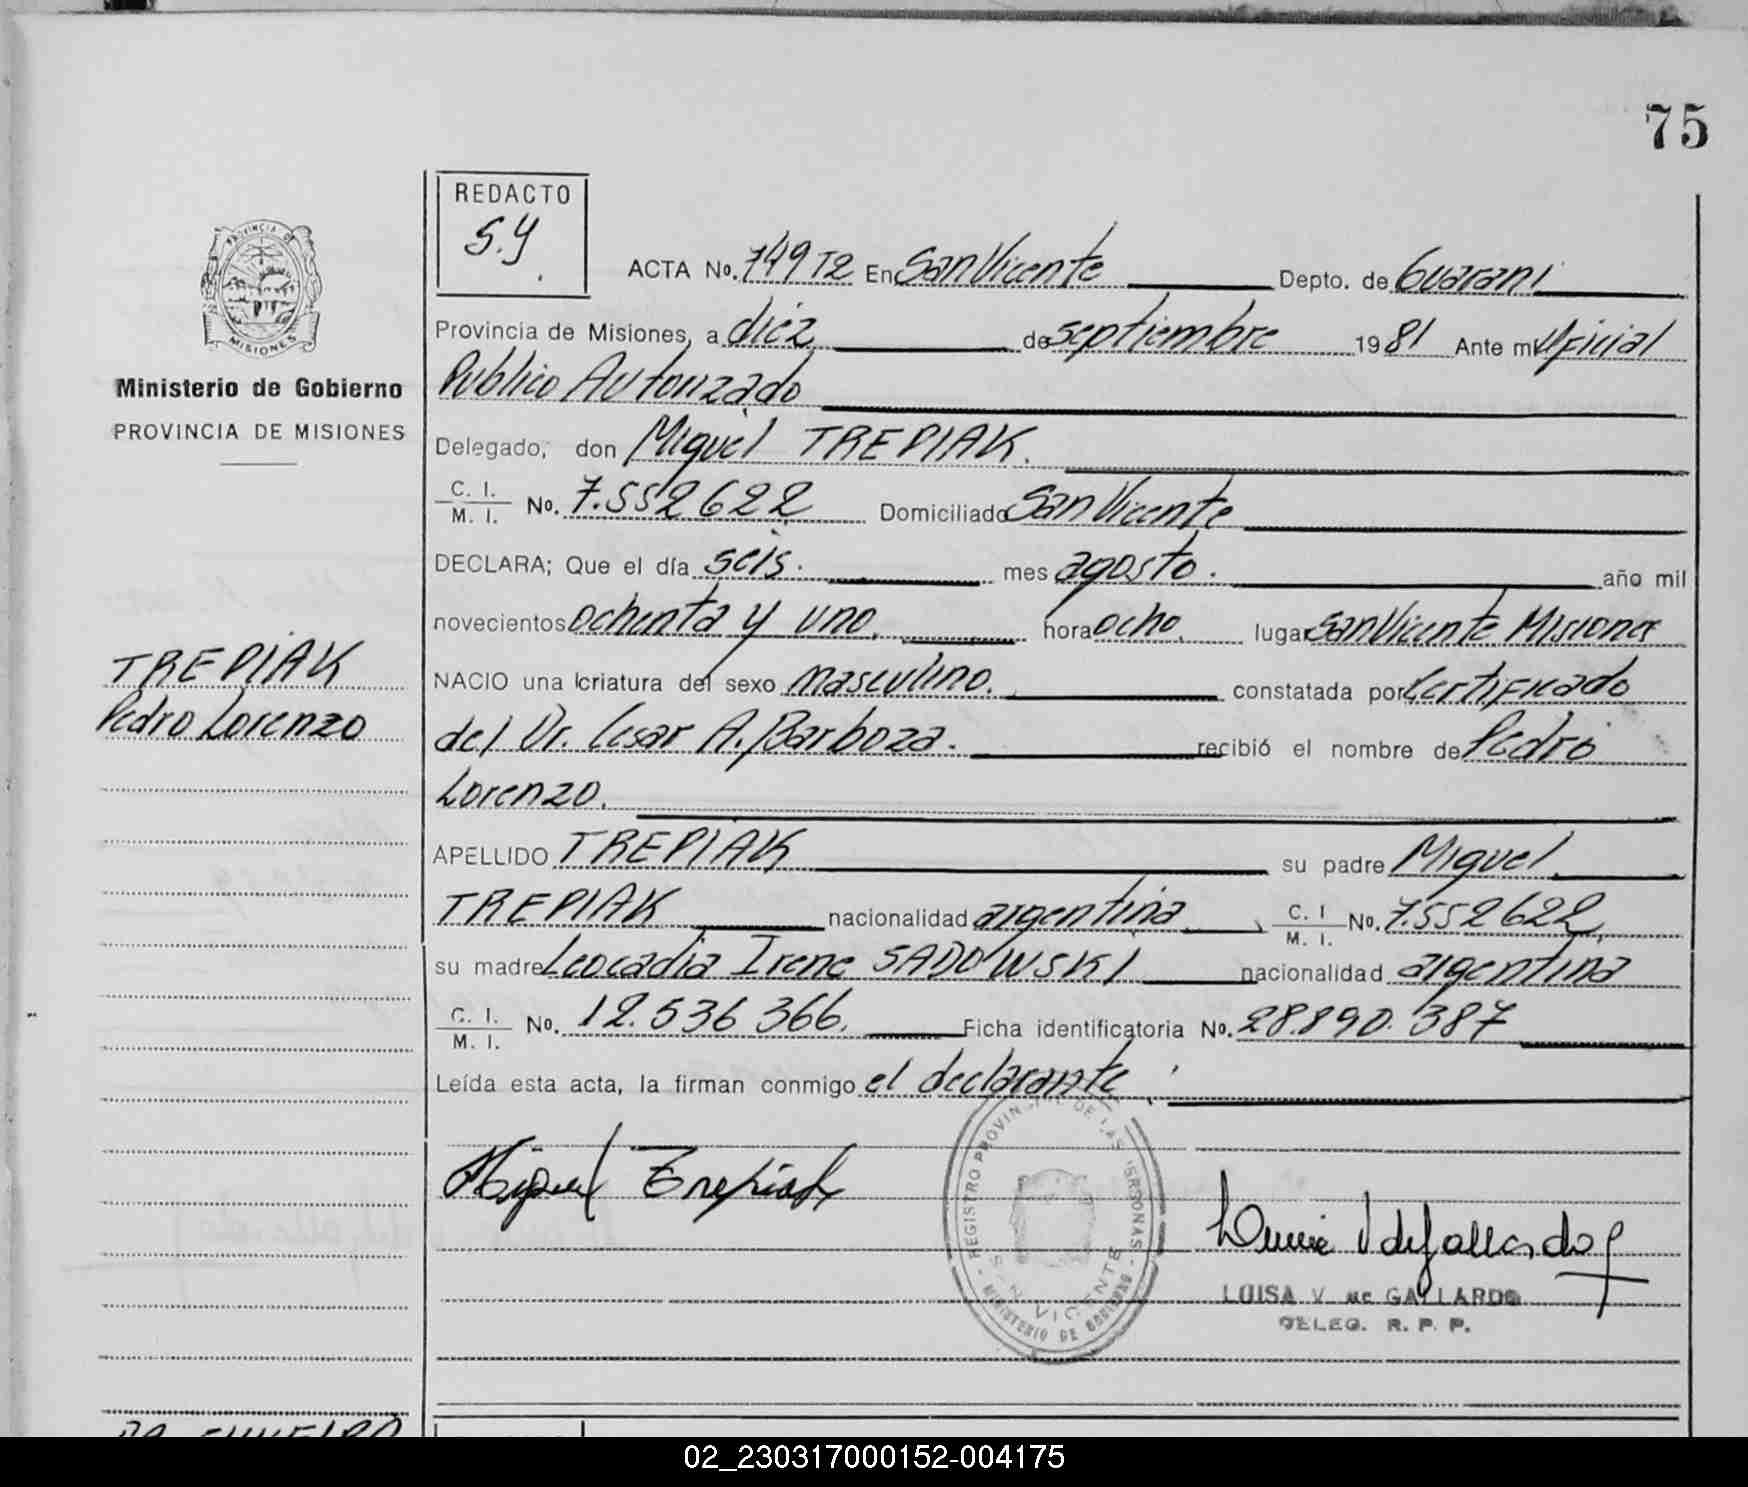 75
REDACTO
S.Y.
ACTA No. 749 T2 En San Vicente Depto. de Guarani
PROVINCIA DE
MISIONES
Ministerio de Gobierno
PROVINCIA DE MISIONES
Provincia de Misiones, a diez de septiembre 1981 Ante mi Oficial
Publico Autorizado
Delegado, don Miguel TREPIAK.
C. I.
M. I. No. 7.552622 Domiciliado San Vicente
DECLARA; Que el día seis. mes agosto. año mil
novecientos ochenta y uno. hora ocho. lugar San Vicente Misiones
TREPIAK
Pedro Lorenzo
NACIO una criatura del sexo masculino. constatada por Certificado
del Dr. Cesar A. Barboza. recibió el nombre de Pedro
Lorenzo.
APELLIDO TREPIAK su padre Miguel
TREPIAK nacionalidad argentina, C. I. M. I. No. 7.552622.
su madre Leocadia Irene SADOWSKI nacionalidad argentina
C. I.
M. I. No. 12.536 366. Ficha identificatoria No. 28.890.387
Leída esta acta, la firman conmigo el declarante.
Miguel Trepiak
REGISTRO PROVINCIAL DE LAS PERSONAS
SAN VICENTE
MINISTERIO DE GOBIERNO
LUISA V. de GALLARDO
DELEG. R. P. P.
02_230317000152-004175